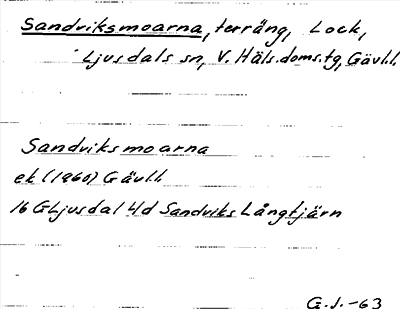 Sandviksmoarna, terräng, Lock,
Ljusdals sn, V. Häls. doms.tg, Gävl.l.
Sandviksmoarna
ek (1960) Gävl.l.
16 G Ljusdal 4d Sandviks Långtjärn
G.J.-63